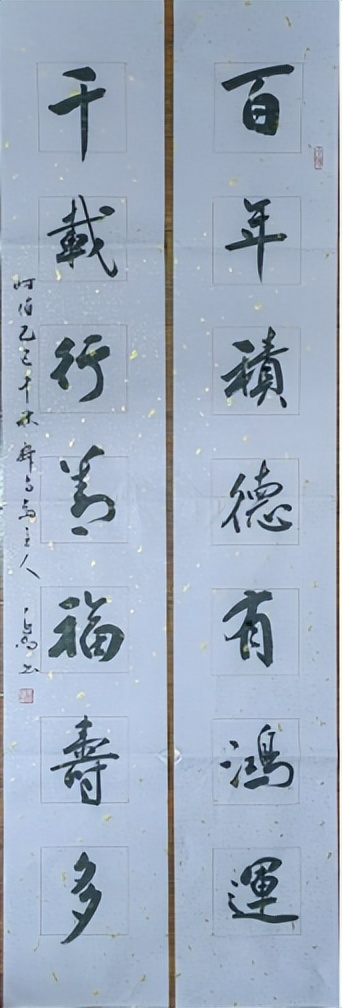 百年積德有鴻運
千載行善福壽多
时值乙巳年秋
主人
书